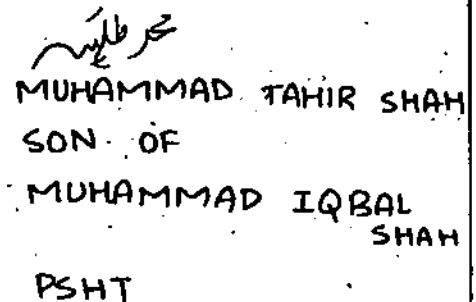 محمد طاہر شاہ
MUHAMMAD TAHIR SHAH
SON OF
MUHAMMAD IQBAL
SHAH
PSHT